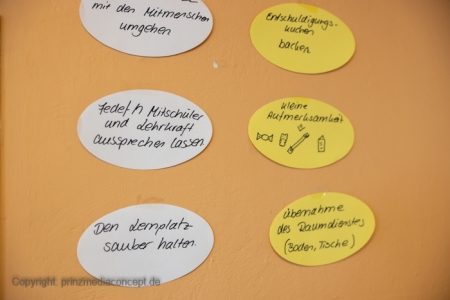 mit den Mitmenschen
umgehen
Entschuldigungs-
kuchen
backen
Jede/n Mitschüler
und Lehrkraft
aussprechen lassen
kleine
Aufmerksamkeit
Den Lernplatz
sauber halten.
Übernahme
des Raumdienstes
(Boden, Tische)
Copyright: prinzmediaconcept.de